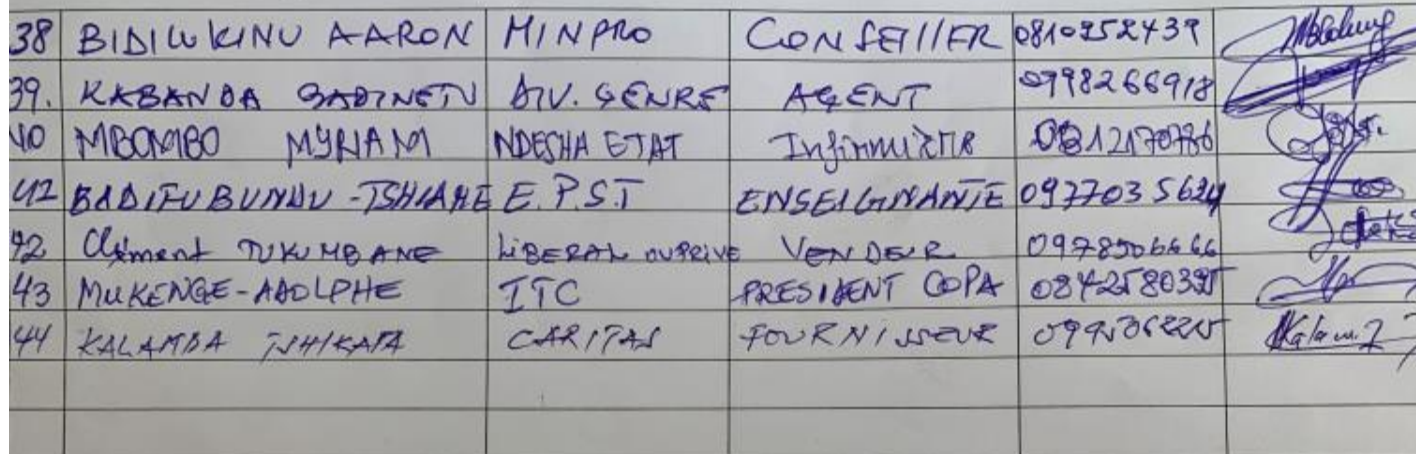 38 BIDILUKINU AARON MINPRO CONSEILLER 0810952439
39. KABANDA DIV. GENRE AGENT 0998266918
40 MBOMBO MYRIAM NDESHA ETAT Infirmière
42 BADIFUBUNDU-TSHIAHE E.P.S.T ENSEIGNANTE
42 Clément TUKUMBANE LIBERAL OUPRIVE VENDEUR 0978506666
43 MUKENGE-ADOLPHE ITC PRESIDENT COPA
44 KALAMBA TSHIKATA CARITAS FOURNISSEUR